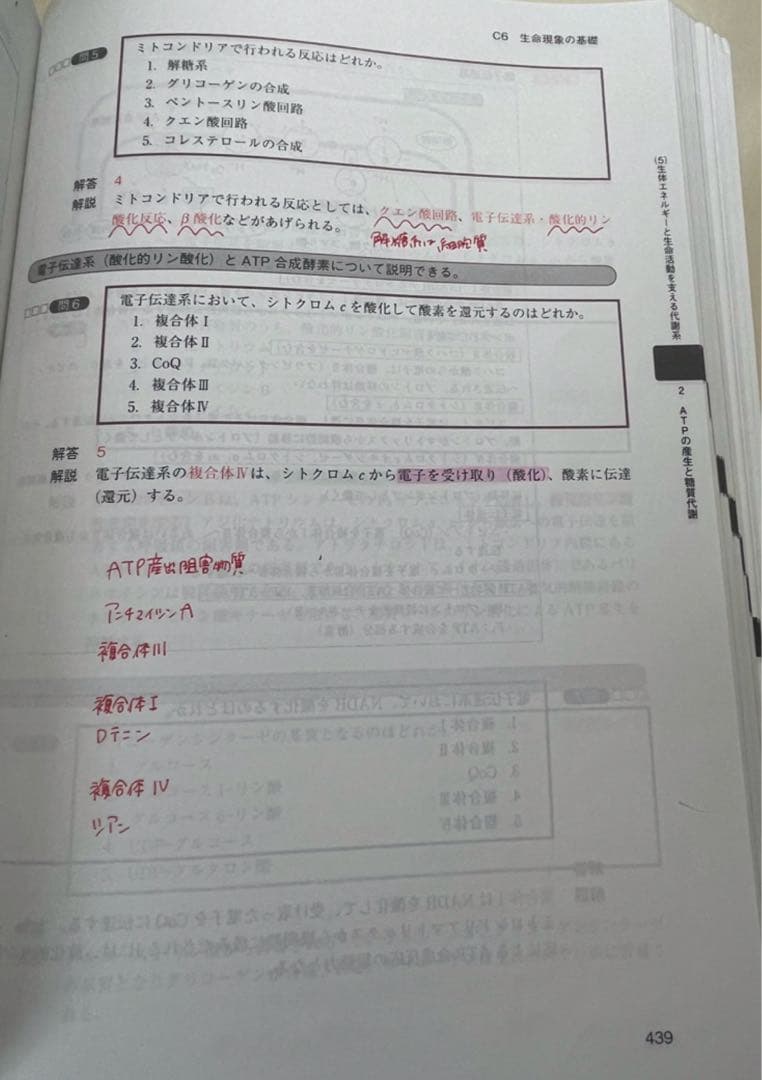 C6 生命現象の基礎
問5
ミトコンドリアで行われる反応はどれか。
1. 解糖系
2. グリコーゲンの合成
3. ペントースリン酸回路
4. クエン酸回路
5. コレステロールの合成
解答 4
解説 ミトコンドリアで行われる反応としては、クエン酸回路、電子伝達系・酸化的リン
酸化反応、β酸化などがあげられる。
解糖系は、細胞質
電子伝達系（酸化的リン酸化）とATP合成酵素について説明できる。
問6
電子伝達系において、シトクロムcを酸化して酸素を還元するのはどれか。
1. 複合体Ⅰ
2. 複合体Ⅱ
3. CoQ
4. 複合体Ⅲ
5. 複合体Ⅳ
解答 5
解説 電子伝達系の複合体Ⅳは、シトクロムcから電子を受け取り（酸化）、酸素に伝達
（還元）する。
ATP産出阻害物質
アンチマイシンA
複合体III
複合体I
ロテニン
複合体IV
シアン
(5)生体エネルギーと生命活動を支える代謝系
2 ATPの産生と糖質代謝
439